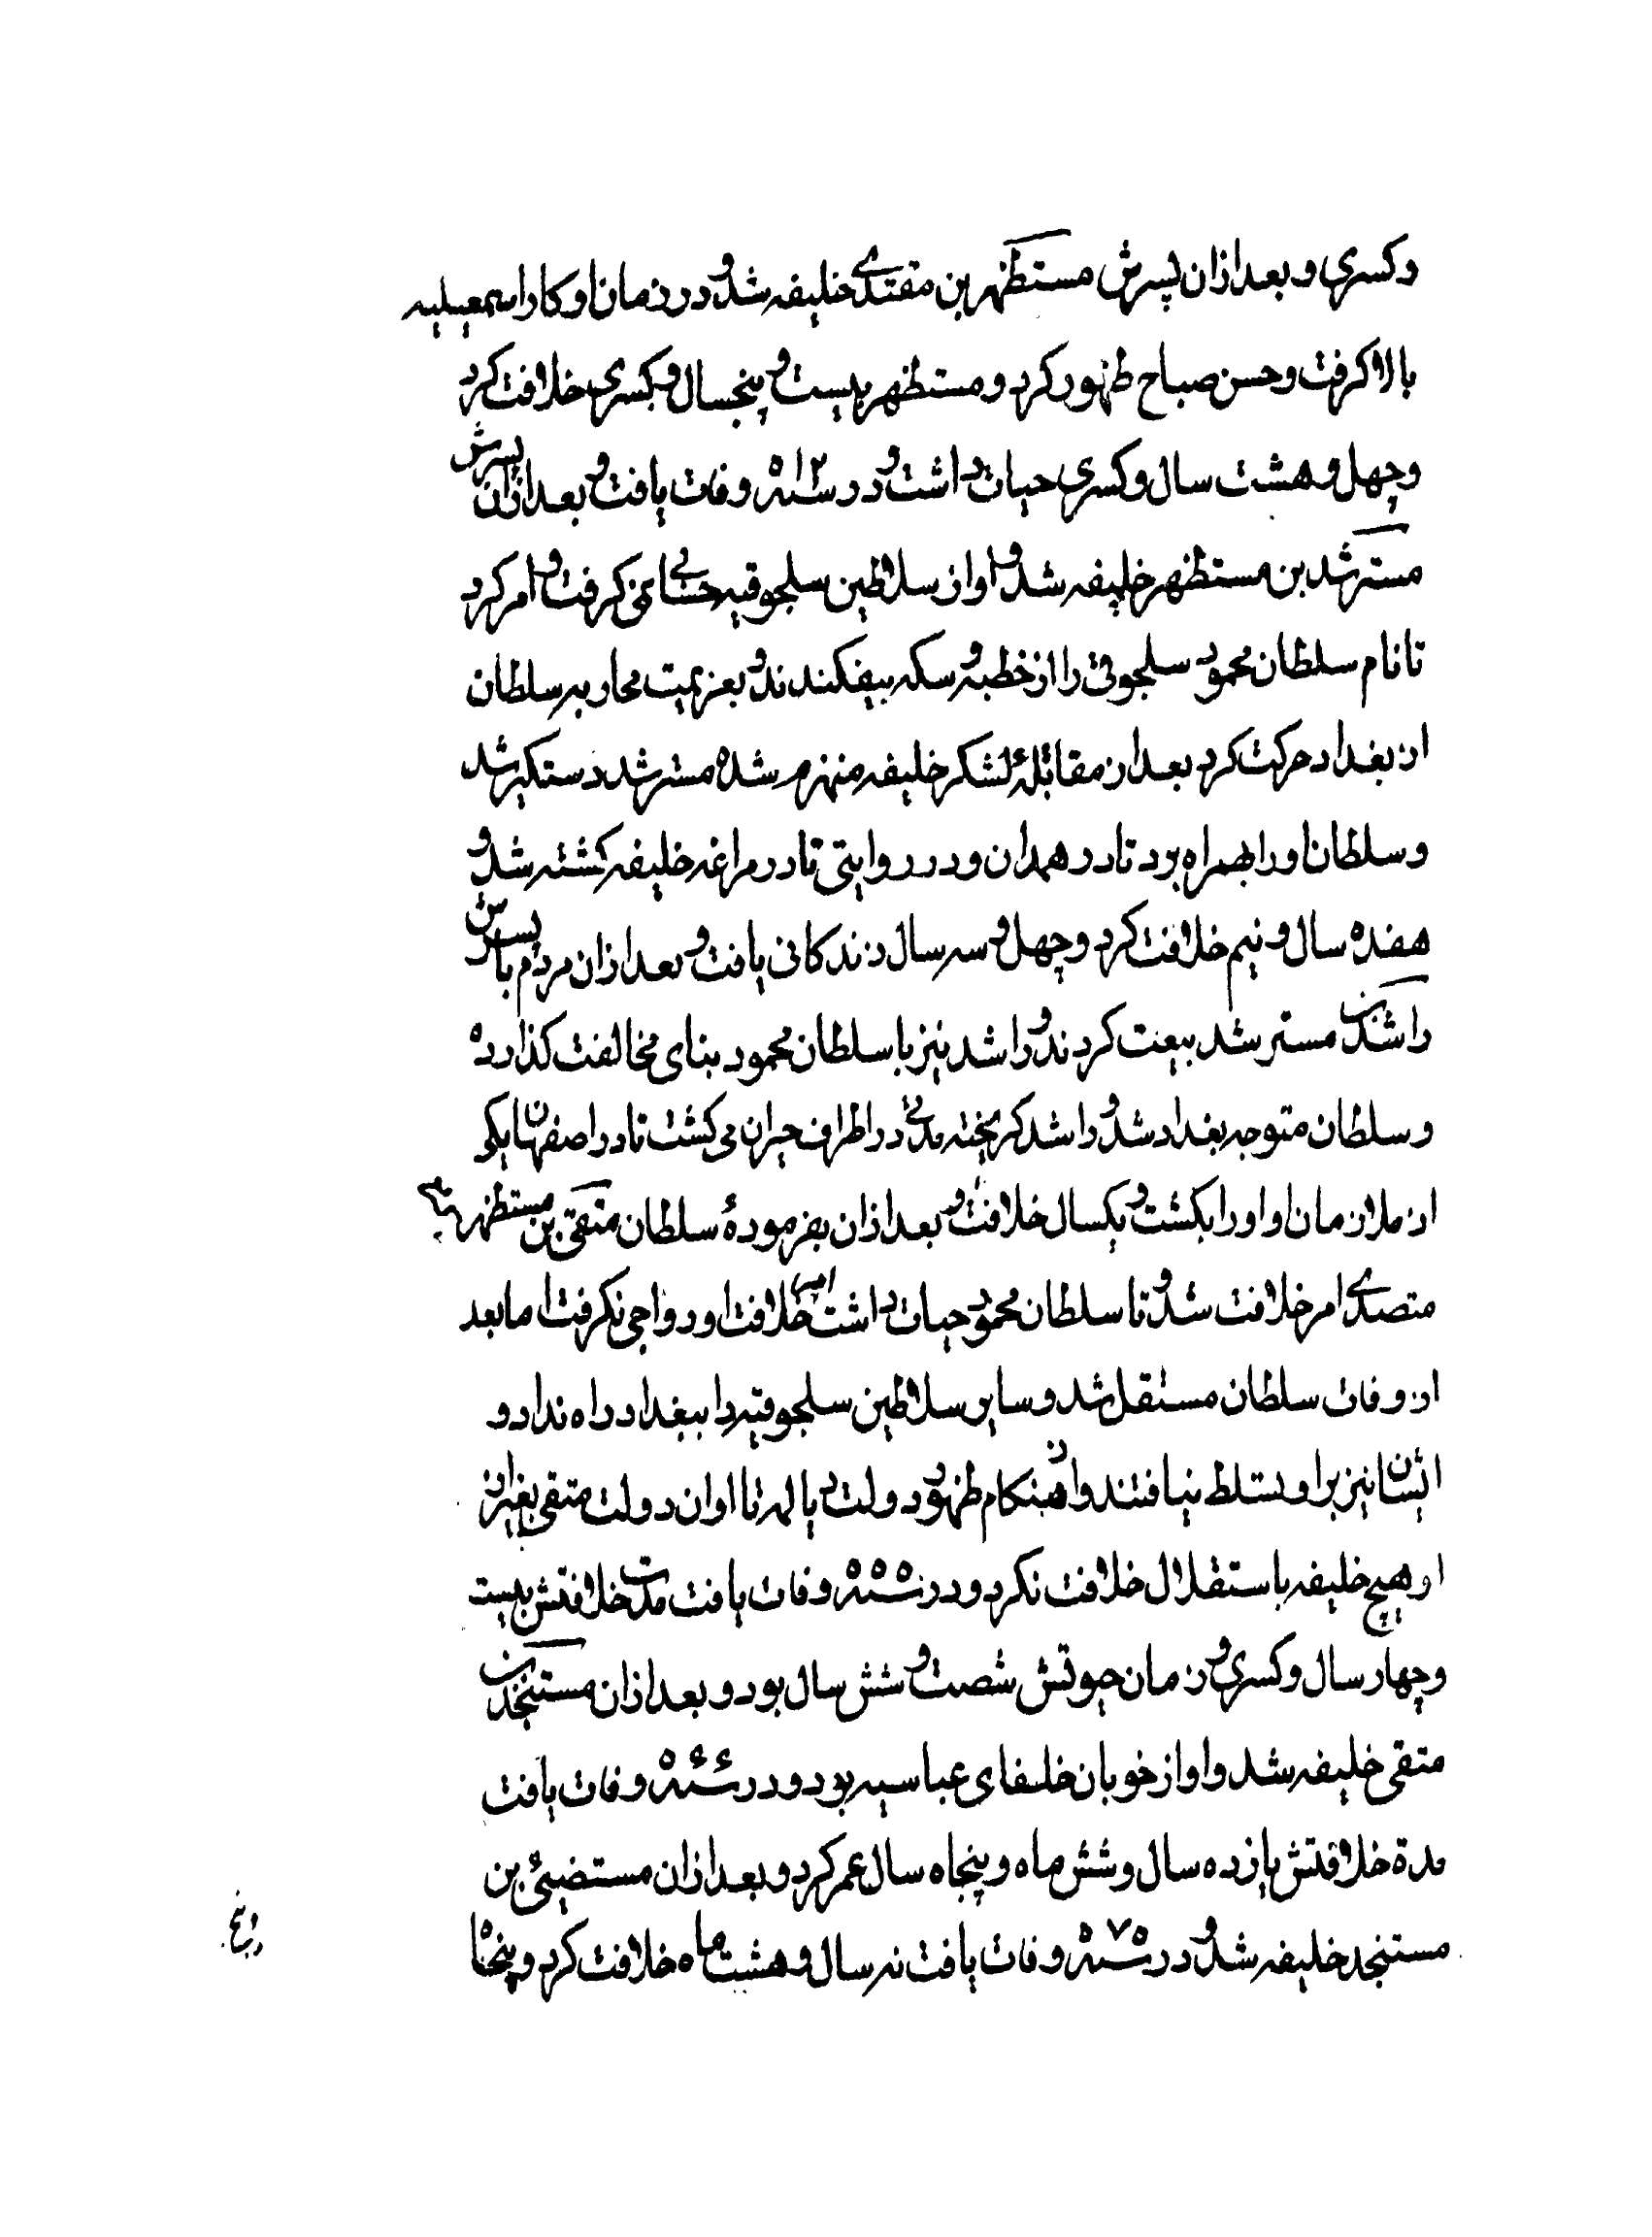 و کسری و بعد ازان پسرش مستظهر بن مقتدی خلیفه شد و در زمان او کار اسمعیلیه
بالا کرفت و حسن صباح ظهور کرد و مستظهر بیست و پنجسال و کسری خلافت کرد
و چهل و هشت سال و کسری حیات داشت و در سنه ۵۱۲ وفات یافت و بعد ازان پسرش
مسترشد بن مستظهر خلیفه شد و او از سلاطین سلجوقیه حسابی نمی کرفت و امر کرد
تا نام سلطان محمود سلجوقی را از خطبه و سکه بیفکندند و بعزیمت محاربه سلطان
از بغداد حرکت کرد بعد از مقاتله لشکر خلیفه منهزم شده مسترشد دستکیر شد
و سلطان او را بهمراه برد تا در همدان و در روایتی تا در مراغه خلیفه کشته شد و
هفده سال و نیم خلافت کرد و چهل و سه سال زندکانی یافت و بعد ازان مردم با پسرش
راشد بن مسترشد بیعت کردند و راشد نیز با سلطان محمود بنای مخالفت کذارده
و سلطان متوجه بغداد شد و راشد کریخته مدتی در اطراف حیران می کشت تا در اصفهان یکی
از ملازمان او او را بکشت و یکسال خلافت و بعد ازان بفرمودۀ سلطان متقی بن مستظهر
متصدی امر خلافت شد و تا سلطان محمود حیات داشت امر خلافت او رواجی نکرفت اما بعد
از وفات سلطان مستقل شد و سایر سلاطین سلجوقیه را ببغداد راه نداد و
ایشان نیز بر او تسلط نیافتند و از هنکام ظهور دولت دیالمه تا اوان دولت متقی بغیر از
او هیچ خلیفه باستقلال خلافت نکرد و در سنه ۵۵۵ وفات یافت مدت خلافتش بیست
و چهار سال و کسری و زمان حیوتش شصت و شش سال بود و بعد ازان مستنجد بن
متقی خلیفه شد و او از خوبان خلفای عباسیه بود و در سنه وفات یافت
مدة خلافتش یازده سال و شش ماه و پنجاه سال عمر کرد و بعد ازان مستضیئ بن
مستنجد خلیفه شد و در سنه ۵۷۵ وفات یافت نه سال و هشت ماه خلافت کرد و پنجاه
و پنج